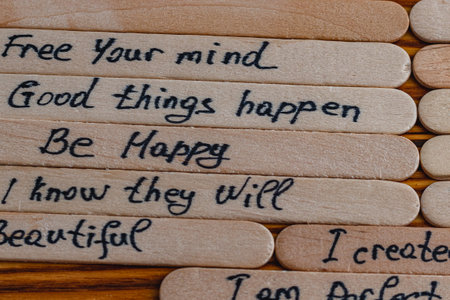 Free Your mind
Good things happen
Be Happy
I know they will
Beautiful
I create
I am Perfect